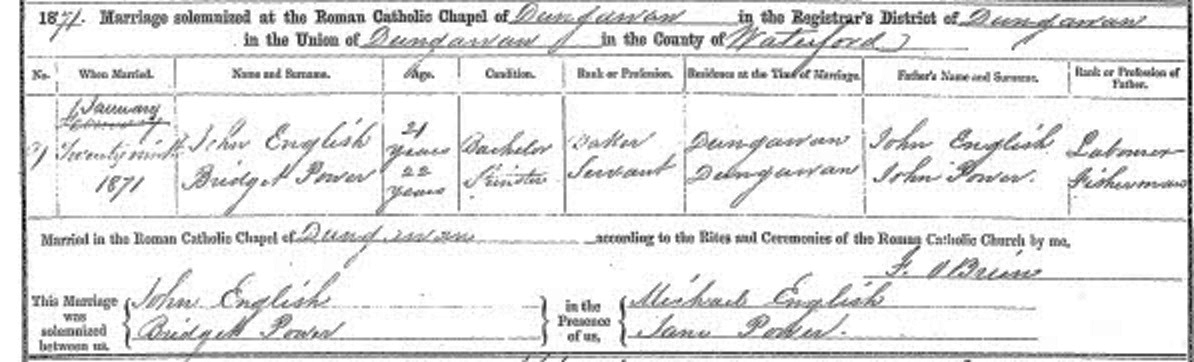 1871. Marriage solemnized at the Roman Catholic Chapel of Dungarvan in the Registrar's District of Dungarvan
in the Union of Dungarvan in the County of Waterford
No. When Married. Name and Surname. Age. Condition. Rank or Profession. Residence at the Time of Marriage. Father's Name and Surname. Rank or Profession of Father.
January
Twenty ninth John English 21 years Bachelor Baker Dungarvan John English Labourer
1871 Bridget Power 22 years Spinster Servant Dungarvan John Power. Fisherman
Married in the Roman Catholic Chapel of Dungarvan according to the Rites and Ceremonies of the Roman Catholic Church by me,
F. O'Brien
This Marriage was solemnized between us, John English in the Presence of us, Michael English
Bridget Power Jane Power.